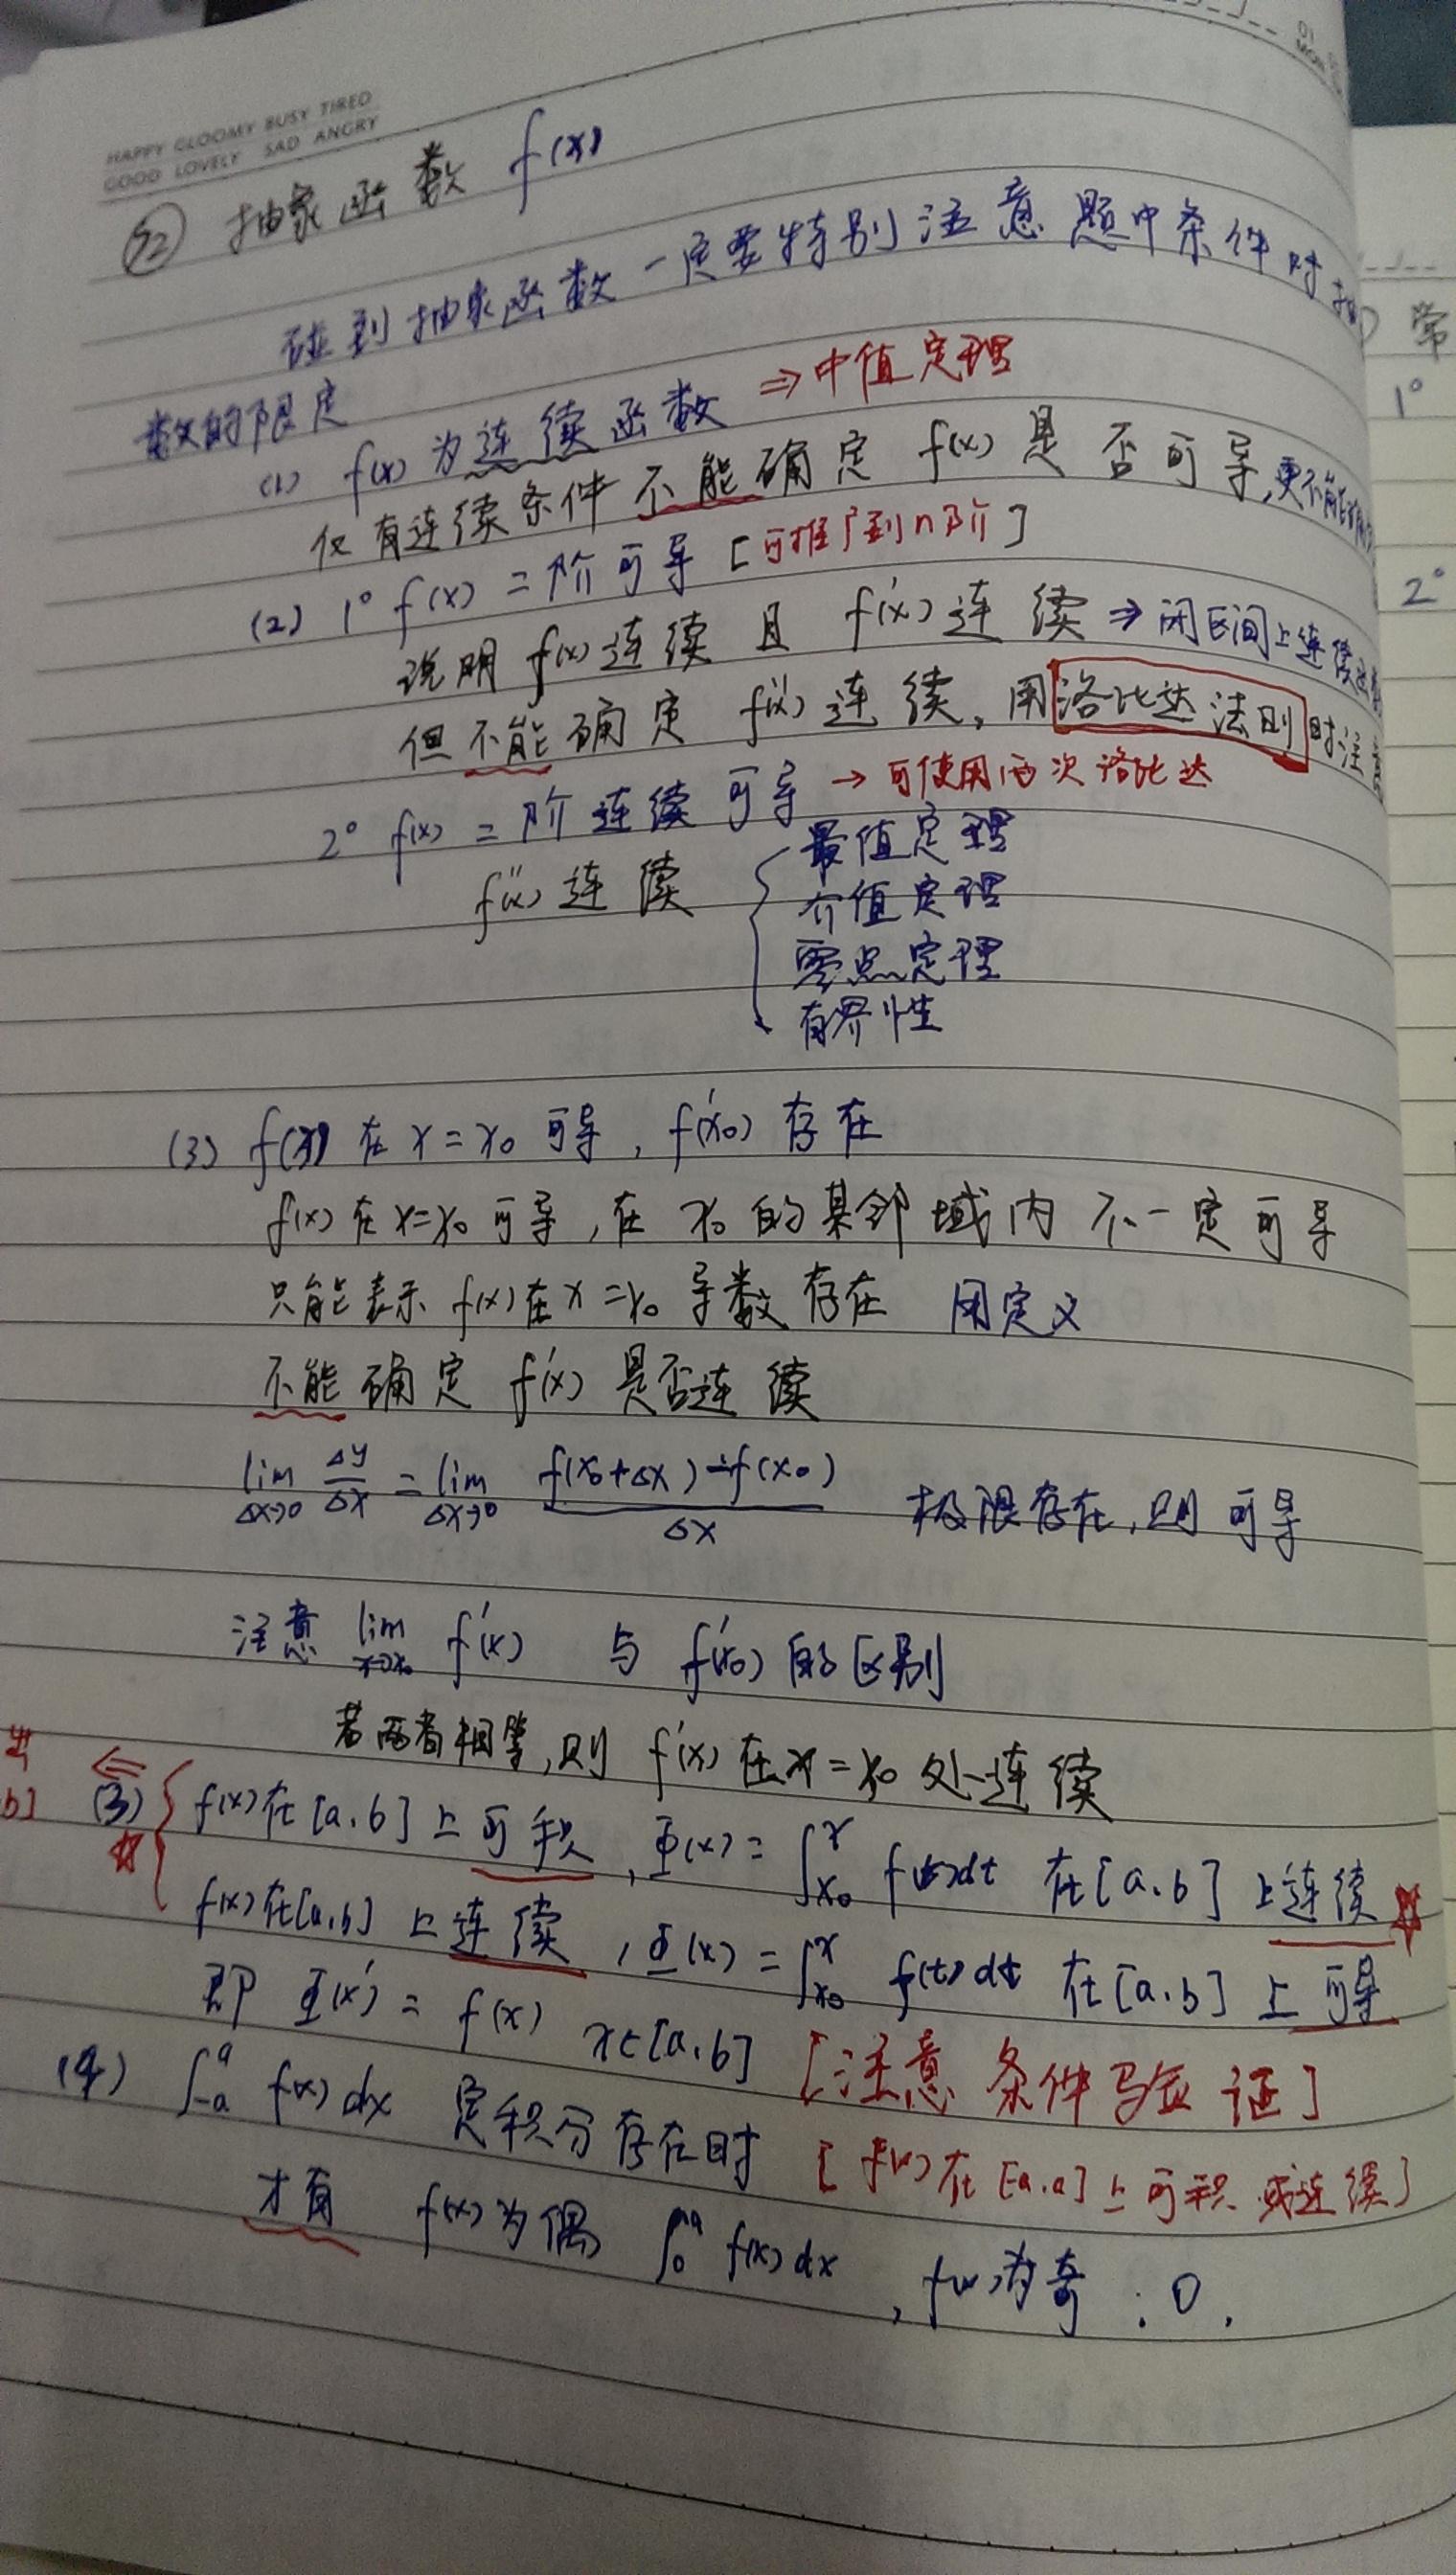 HAPPY GLOOMY BUSY TIRED
GOOD LOVELY SAD ANGRY
② 抽象函数 f(x)
碰到抽象函数一定要特别注意题中条件对抽
数的限定
(1) f(x) 为连续函数 ⇒ 中值定理
仅有连续条件不能确定 f(x) 是否可导,更不能
(2) 1° f(x) 二阶可导 [可推广到n阶]
说明 f(x) 连续 且 f'(x) 连续 ⇒ 闭区间上连续
但不能确定 f''(x) 连续, 用洛比达法则时注
2° f(x) 二阶连续可导 → 可使用两次洛比达
f''(x) 连续 { 最值定理
介值定理
零点定理
有界性
(3) f(x) 在 x=x₀ 可导, f'(x₀) 存在
f(x) 在 x=x₀ 可导, 在 x₀ 的某邻域内 不一定可导
只能表示 f(x) 在 x=x₀ 导数存在 用定义
不能确定 f'(x) 是否连续
lim Δx→0 Δy/Δx = lim Δx→0 (f(x₀+Δx)-f(x₀))/Δx 极限存在, 则可导
注意 lim x→x₀ f'(x) 与 f'(x₀) 的区别
若两者相等, 则 f'(x) 在 x=x₀ 处连续
b] ⇐ (3) { f(x) 在 [a,b] 上可积, Φ(x) = ∫_{x₀}^{x} f(t)dt 在 [a,b] 上连续 ☆
☆ f(x) 在 [a,b] 上连续, Φ(x) = ∫_{x₀}^{x} f(t)dt 在 [a,b] 上可导
即 Φ'(x) = f(x) x∈[a,b] [注意条件验证]
(4) ∫_{-a}^{a} f(x)dx 定积分存在时 [f(x) 在 [-a,a] 上可积或连续]
才有 f(x) 为偶 ∫_{0}^{a} f(x)dx, f(x) 为奇: 0.
常
1°
2°